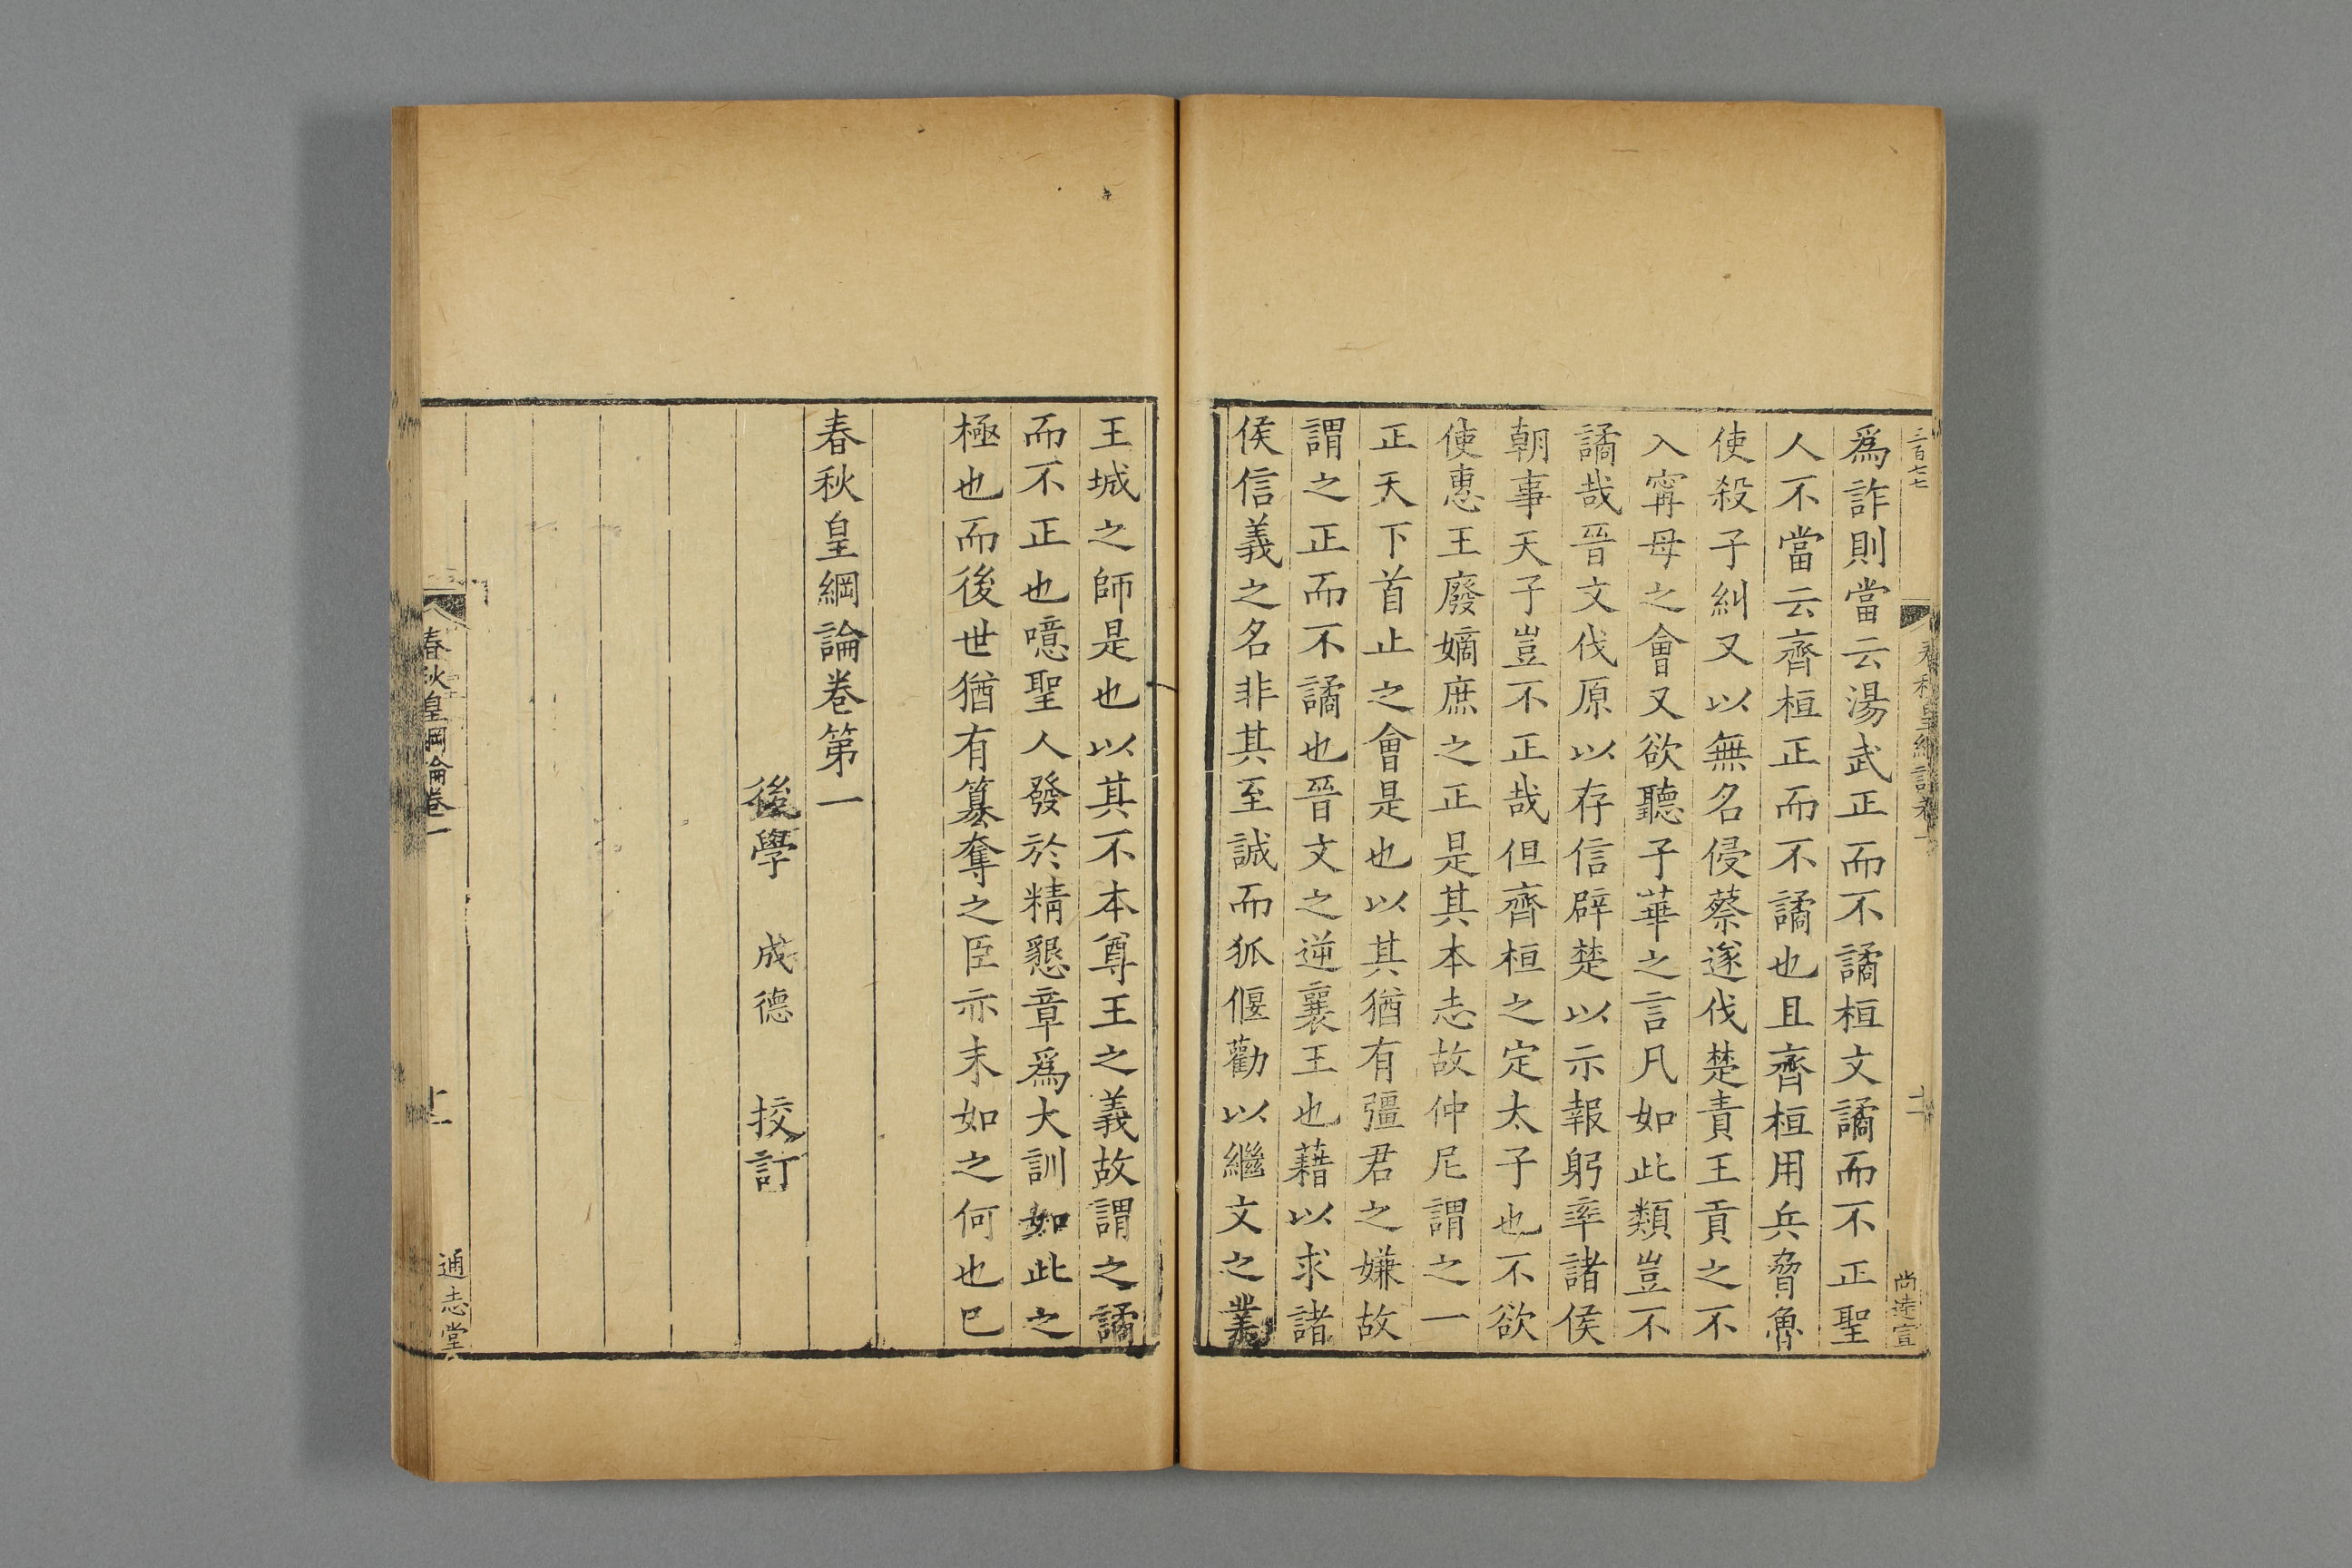 三百七七
春秋皇綱論卷一
十一
尚逵宣
爲詐則當云湯武正而不譎桓文譎而不正聖
人不當云齊桓正而不譎也且齊桓用兵脅魯
使殺子糾又以無名侵蔡遂伐楚責王貢之不
入甯母之會又欲聽子華之言凡如此類豈不
譎哉晉文伐原以存信辟楚以示報躬率諸侯
朝事天子豈不正哉但齊桓之定太子也不欲
使惠王廢嫡庶之正是其本志故仲尼謂之一
正天下首止之會是也以其猶有彊君之嫌故
謂之正而不譎也晉文之逆襄王也藉以求諸
侯信義之名非其至誠而狐偃勸以繼文之業
王城之師是也以其不本尊王之義故謂之譎
而不正也噫聖人發於精懇章爲大訓如此之
極也而後世猶有篡奪之臣亦末如之何也已
春秋皇綱論卷第一
後學 成德 挍訂
春秋皇綱論卷一
十一
通志堂